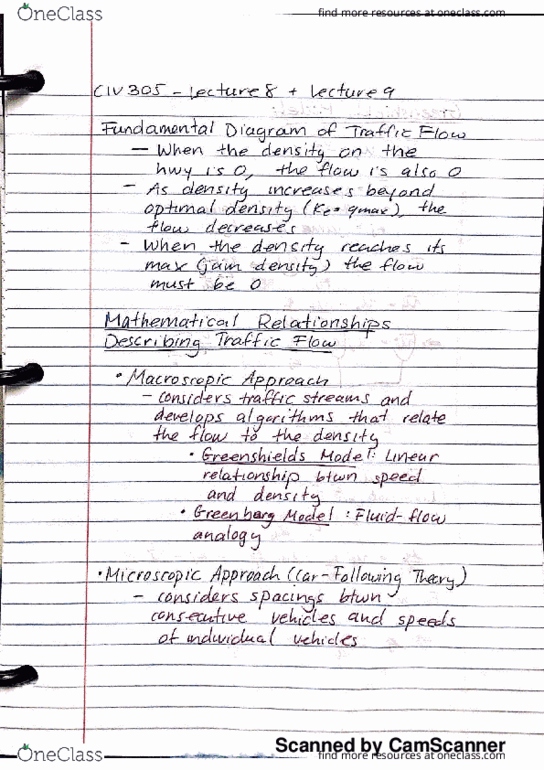 OneClass
find more resources at oneclass.com
CIV305 - Lecture 8 + Lecture 9
Fundamental Diagram of Traffic Flow
- When the density on the
hwy is 0, the flow is also 0
- As density increases beyond
optimal density (Ko = qmax), the
flow decreases
- When the density reaches its
max (jam density) the flow
must be 0
Mathematical Relationships
Describing Traffic Flow
• Macroscopic Approach
- considers traffic streams and
develops algorithms that relate
the flow to the density
• Greenshields Model: Linear
relationship btwn speed
and density
• Greenberg Model: Fluid-flow
analogy
• Microscopic Approach (Car-Following Theory)
- considers spacings btwn
consecutive vehicles and speeds
of individual vehicles
Scanned by CamScanner
OneClass
find more resources at oneclass.com